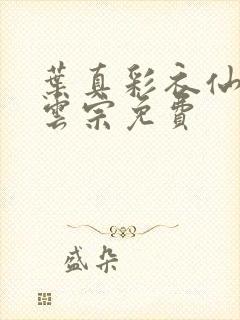 葉真彩衣仙
雲宗免費
盛朵